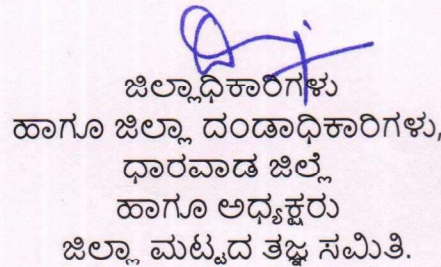 ಜಿಲ್ಲಾಧಿಕಾರಿಗಳು
ಹಾಗೂ ಜಿಲ್ಲಾ ದಂಡಾಧಿಕಾರಿಗಳು,
ಧಾರವಾಡ ಜಿಲ್ಲೆ
ಹಾಗೂ ಅಧ್ಯಕ್ಷರು
ಜಿಲ್ಲಾ ಮಟ್ಟದ ತಜ್ಞ ಸಮಿತಿ.